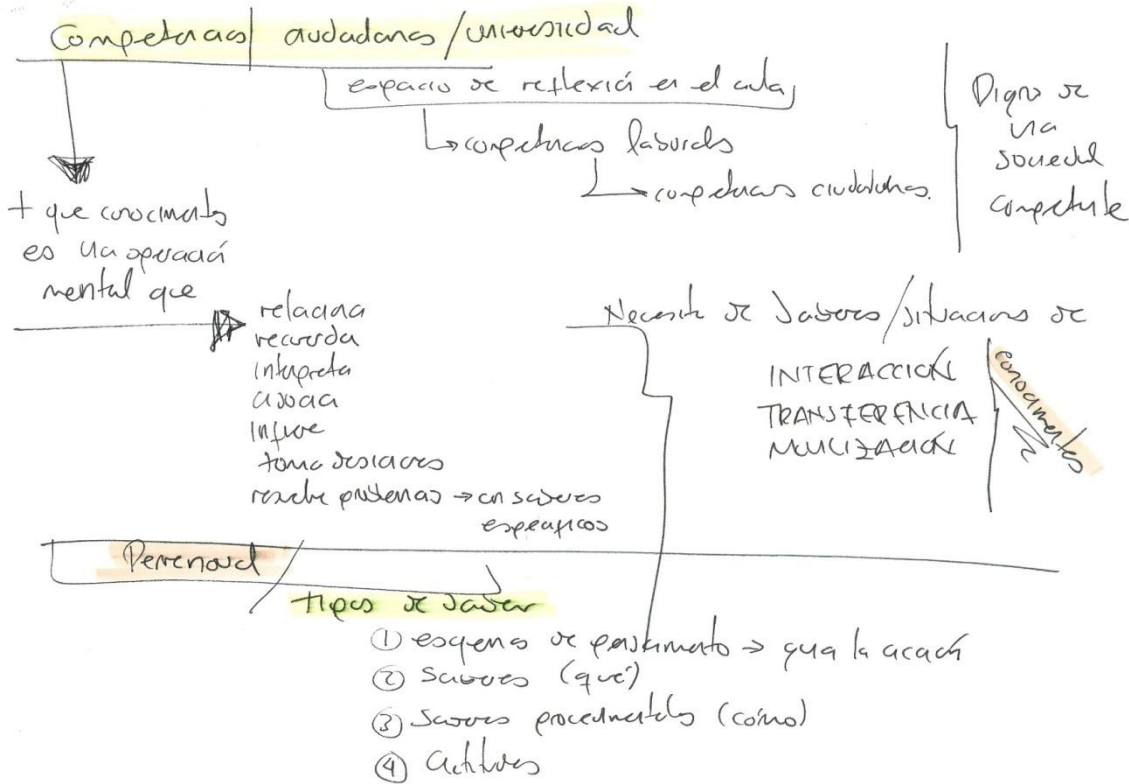 Competencias ciudadanas / universidad
espacio de reflexión en el aula
competencias laborales
competencias ciudadanas.
Digno de
una
sociedad
competente
+ que conocimiento
es una operación
mental que
relaciona
recuerda
interpreta
asocia
infiere
toma desiciones
resuelve problemas → con saberes
específicos
Necesita de saberes / situaciones de
INTERACCIÓN
TRANSFERENCIA
MOVILIZACIÓN
conocimientos
Perrenoud
tipos de saber
① esquemas de pensamiento → guia la acción
② saberes (qué)
③ saberes procedimentales (cómo)
④ actitudes